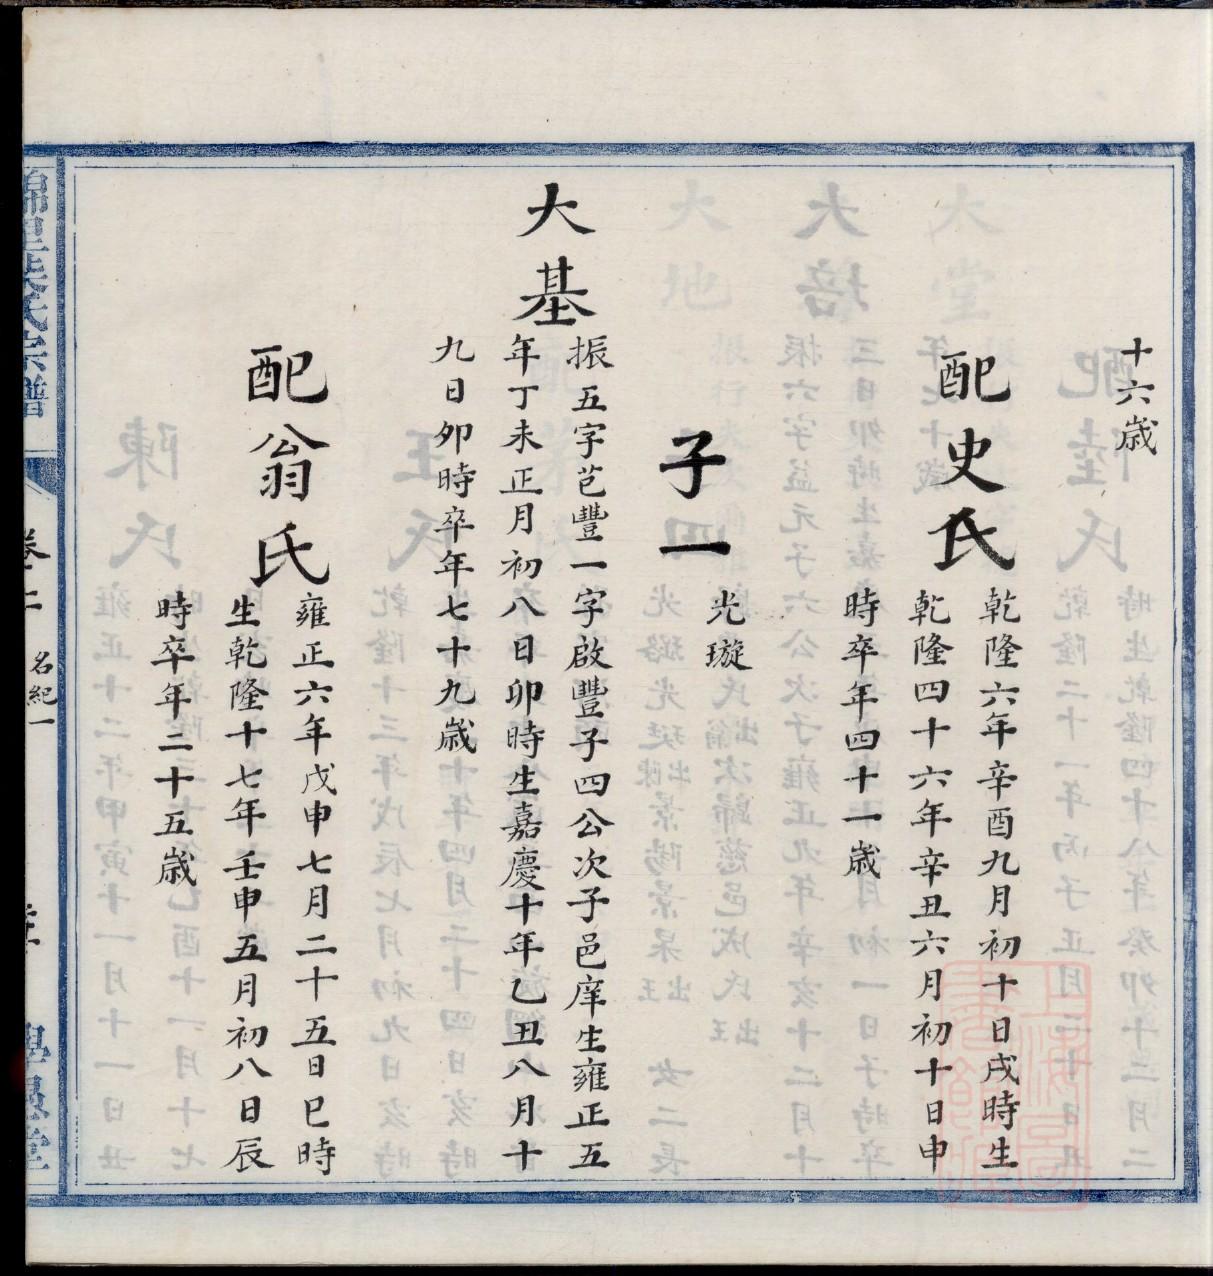 十六歳
配史氏
乾隆六年辛酉九月初十日戌時生
乾隆四十六年辛丑六月初十日申
時卒年四十一歳
子一
光璇
大基
振五字芑豐一字啟豐子四公次子邑庠生雍正五
年丁未正月初八日卯時生嘉慶十年乙丑八月十
九日卯時卒年七十九歳
配翁氏
雍正六年戊申七月二十五日巳時
生乾隆十七年壬申五月初八日辰
時卒年二十五歳
氏宗譜
名紀一